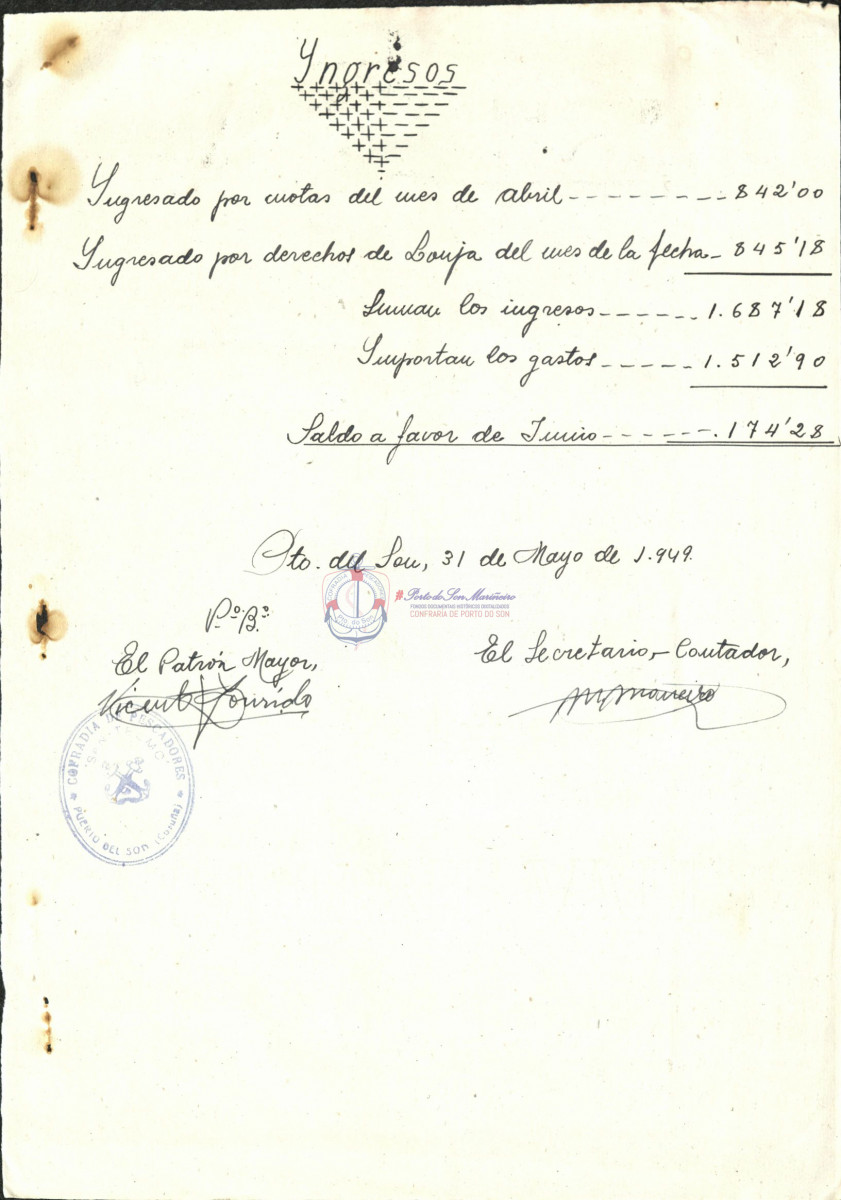 Yngresos
Yngresado por cuotas del mes de abril - - - - - - - - 842'00
Yngresado por derechos de Lonja del mes de la fecha - 845'18
Suman los ingresos - - - - - - 1.687'18
Ymportan los gastos - - - - - 1.512'90
Saldo a favor de Junio - - - - - - - . 174'28
Pto. del Son, 31 de Mayo de 1.949.
CONFRADIA
Pto. do Son
# Porto do Son Mariñeiro
FONDOS DOCUMENTAIS HISTÓRICOS DIXITALIZADOS
CONFRARIA DE PORTO DO SON
Vº. Bº.
El Patrón Mayor,
El Secretario, - Contador,
COFRADIA DE PESCADORES
"SAN TELMO"
PUERTO DEL SON (Coruña)